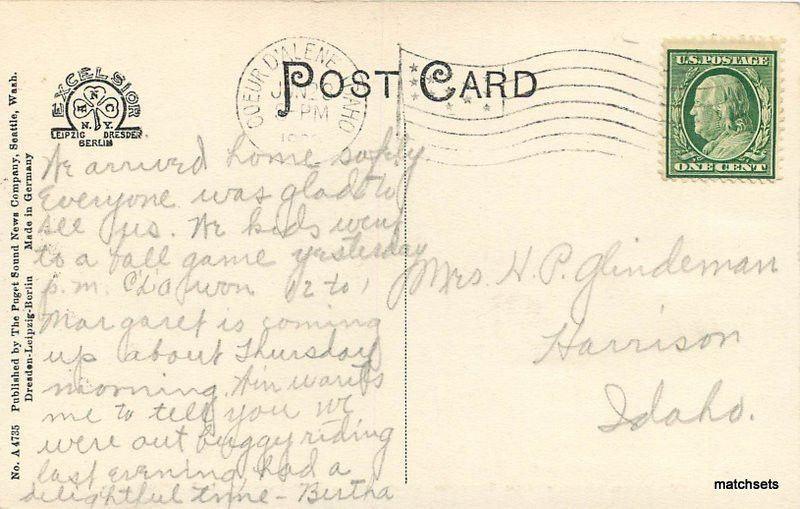 No. A 4735 Published by The Puget Sound News Company, Seattle, Wash.
Dresden-Leipzig-Berlin Made in Germany
EXCELSIOR
H N C
N.Y.
LEIPZIG DRESDEN
BERLIN
POST CARD
COEUR D'ALENE IDAHO
PM
U.S. POSTAGE
ONE CENT
We arrived home safely
Everyone was glad to
see us. We kids went
to a ball game yesterday
p.m. C'd'A won 12 to 1
Margaret is coming
up about Thursday
morning. wants
me to tell you we
were out buggy riding
last evening, had a
delightful time - Bertha
Mrs. H. P. Glindeman
Harrison
Idaho.
matchsets